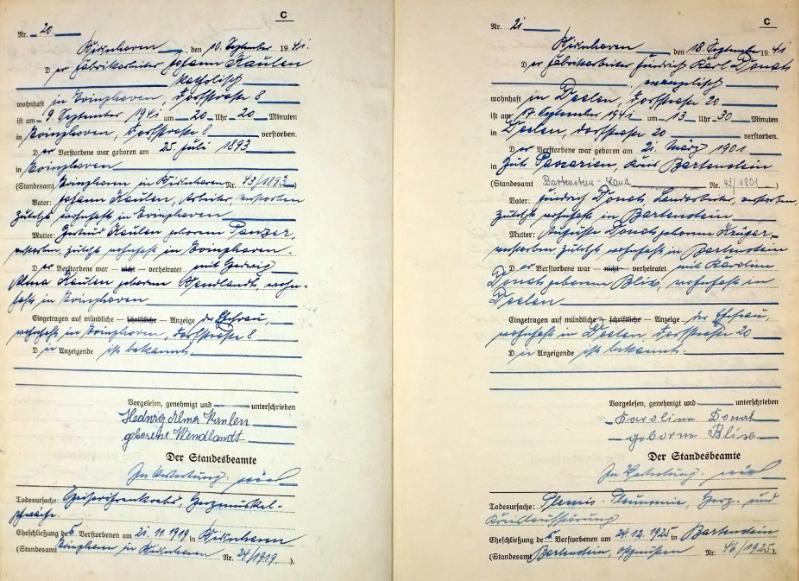 C
Nr. 20
den 10. September 1941.
Der Fabrikarbeiter Johann Kaulen
katholisch
wohnhaft in Dorfstrasse 8
ist am 9. September 1941 um 20 Uhr 20 Minuten
in Dorfstrasse 8 verstorben.
Der Verstorbene war geboren am 25. Juli 1893
in
(Standesamt in Nr. 43/1893)
Vater: Johann Kaulen, Arbeiter, verstorben
zuletzt wohnhaft in
Mutter: Kaulen geborene Panzer
verstorben, zuletzt wohnhaft in
Der Verstorbene war — nicht — verheiratet mit Hedwig
Alma Kaulen geborene Wendlandt, wohn-
haft in
Eingetragen auf mündliche — schriftliche — Anzeige der Ehefrau,
wohnhaft in Dorfstrasse 8
D Anzeigende ist bekannt.
Vorgelesen, genehmigt und unterschrieben
Hedwig Alma Kaulen
geborene Wendlandt
Der Standesbeamte
In Vertretung:
Todesursache: Herzmuskel-
schwäche
Eheschließung des Verstorbenen am 21.11.1919 in
(Standesamt in Nr. 24/1919.)
C
Nr. 21
den 18. September 1941
Der Fabrikarbeiter Friedrich Karl Donat
evangelisch
wohnhaft in Deelen, Dorfstrasse 20
ist am 17. September 1941 um 13 Uhr 30 Minuten
in Deelen, Dorfstrasse 20 verstorben.
Der Verstorbene war geboren am 21. März 1901
in Gut Kreis Bartenstein
(Standesamt Bartenstein-Land Nr. 43/1901)
Vater: Friedrich Donat, Landarbeiter, verstorben,
zuletzt wohnhaft in Bartenstein
Mutter: Auguste Donat geborene Krüger
verstorben zuletzt wohnhaft in Bartenstein
Der Verstorbene war — nicht — verheiratet mit Karoline
Donat geborene Blix, wohnhaft in
Deelen
Eingetragen auf mündliche — schriftliche — Anzeige der Ehefrau,
wohnhaft in Deelen Dorfstrasse 20
D Anzeigende ist bekannt.
Vorgelesen, genehmigt und unterschrieben
Karoline Donat
geborene Blix
Der Standesbeamte
In Vertretung:
Todesursache: Herz- und
Eheschließung des Verstorbenen am 24.12.1925 in Bartenstein
(Standesamt Bartenstein, Ostpreußen Nr. 46/1925).